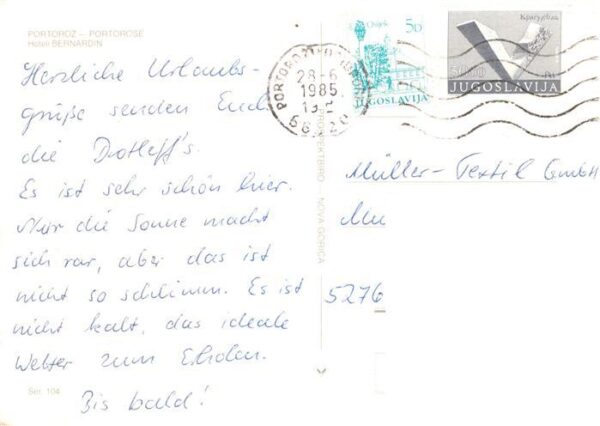 PORTOROŽ – PORTOROSE
Hoteli BERNARDIN
Herzliche Urlaubs-
grüße senden Euch
die Dotleff's.
Es ist sehr schön hier.
Nur die Sonne macht
sich rar, aber das ist
nicht so schlimm. Es ist
nicht kalt, das ideale
Wetter zum Erholen.
Bis bald!
Ser. 104
PROSPEKTBIRO – NOVA GORICA
Osijek
50
JUGOSLAVIJA
Крагујевац
JUGOSLAVIJA
28-6
1985
Müller-Textil GmbH
Mu
5276